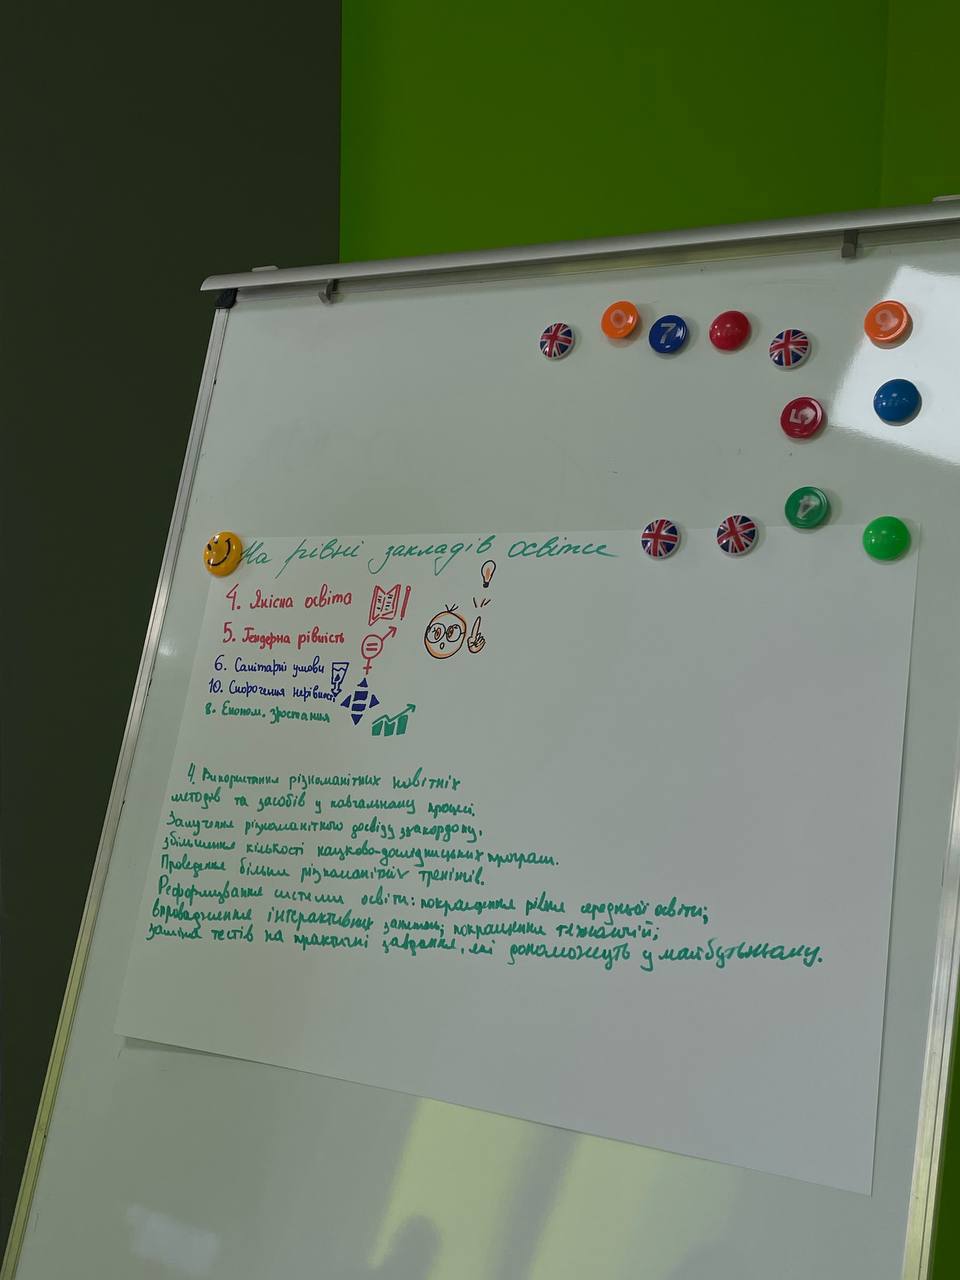 0
7
9
5
4
На рівні закладів освіти
4. Якісна освіта
5. Гендерна рівність
6. Санітарні умови
10. Скорочення нерівност.
8. Економ. зростання
4. Використання різноманітних новітніх
методів та засобів у навчальному процесі.
Залучення різноманітного досвіду закордону,
збільшення кількості науково-дослідницьких програм.
Проведення більш різноманітніх тренінгів.
Реформування системи освіти: покращення рівня середньої освіти;
впровадження інтерактивних занять; покращення технологій;
заміна тестів на практичні завдання, які допоможуть у майбутньному.